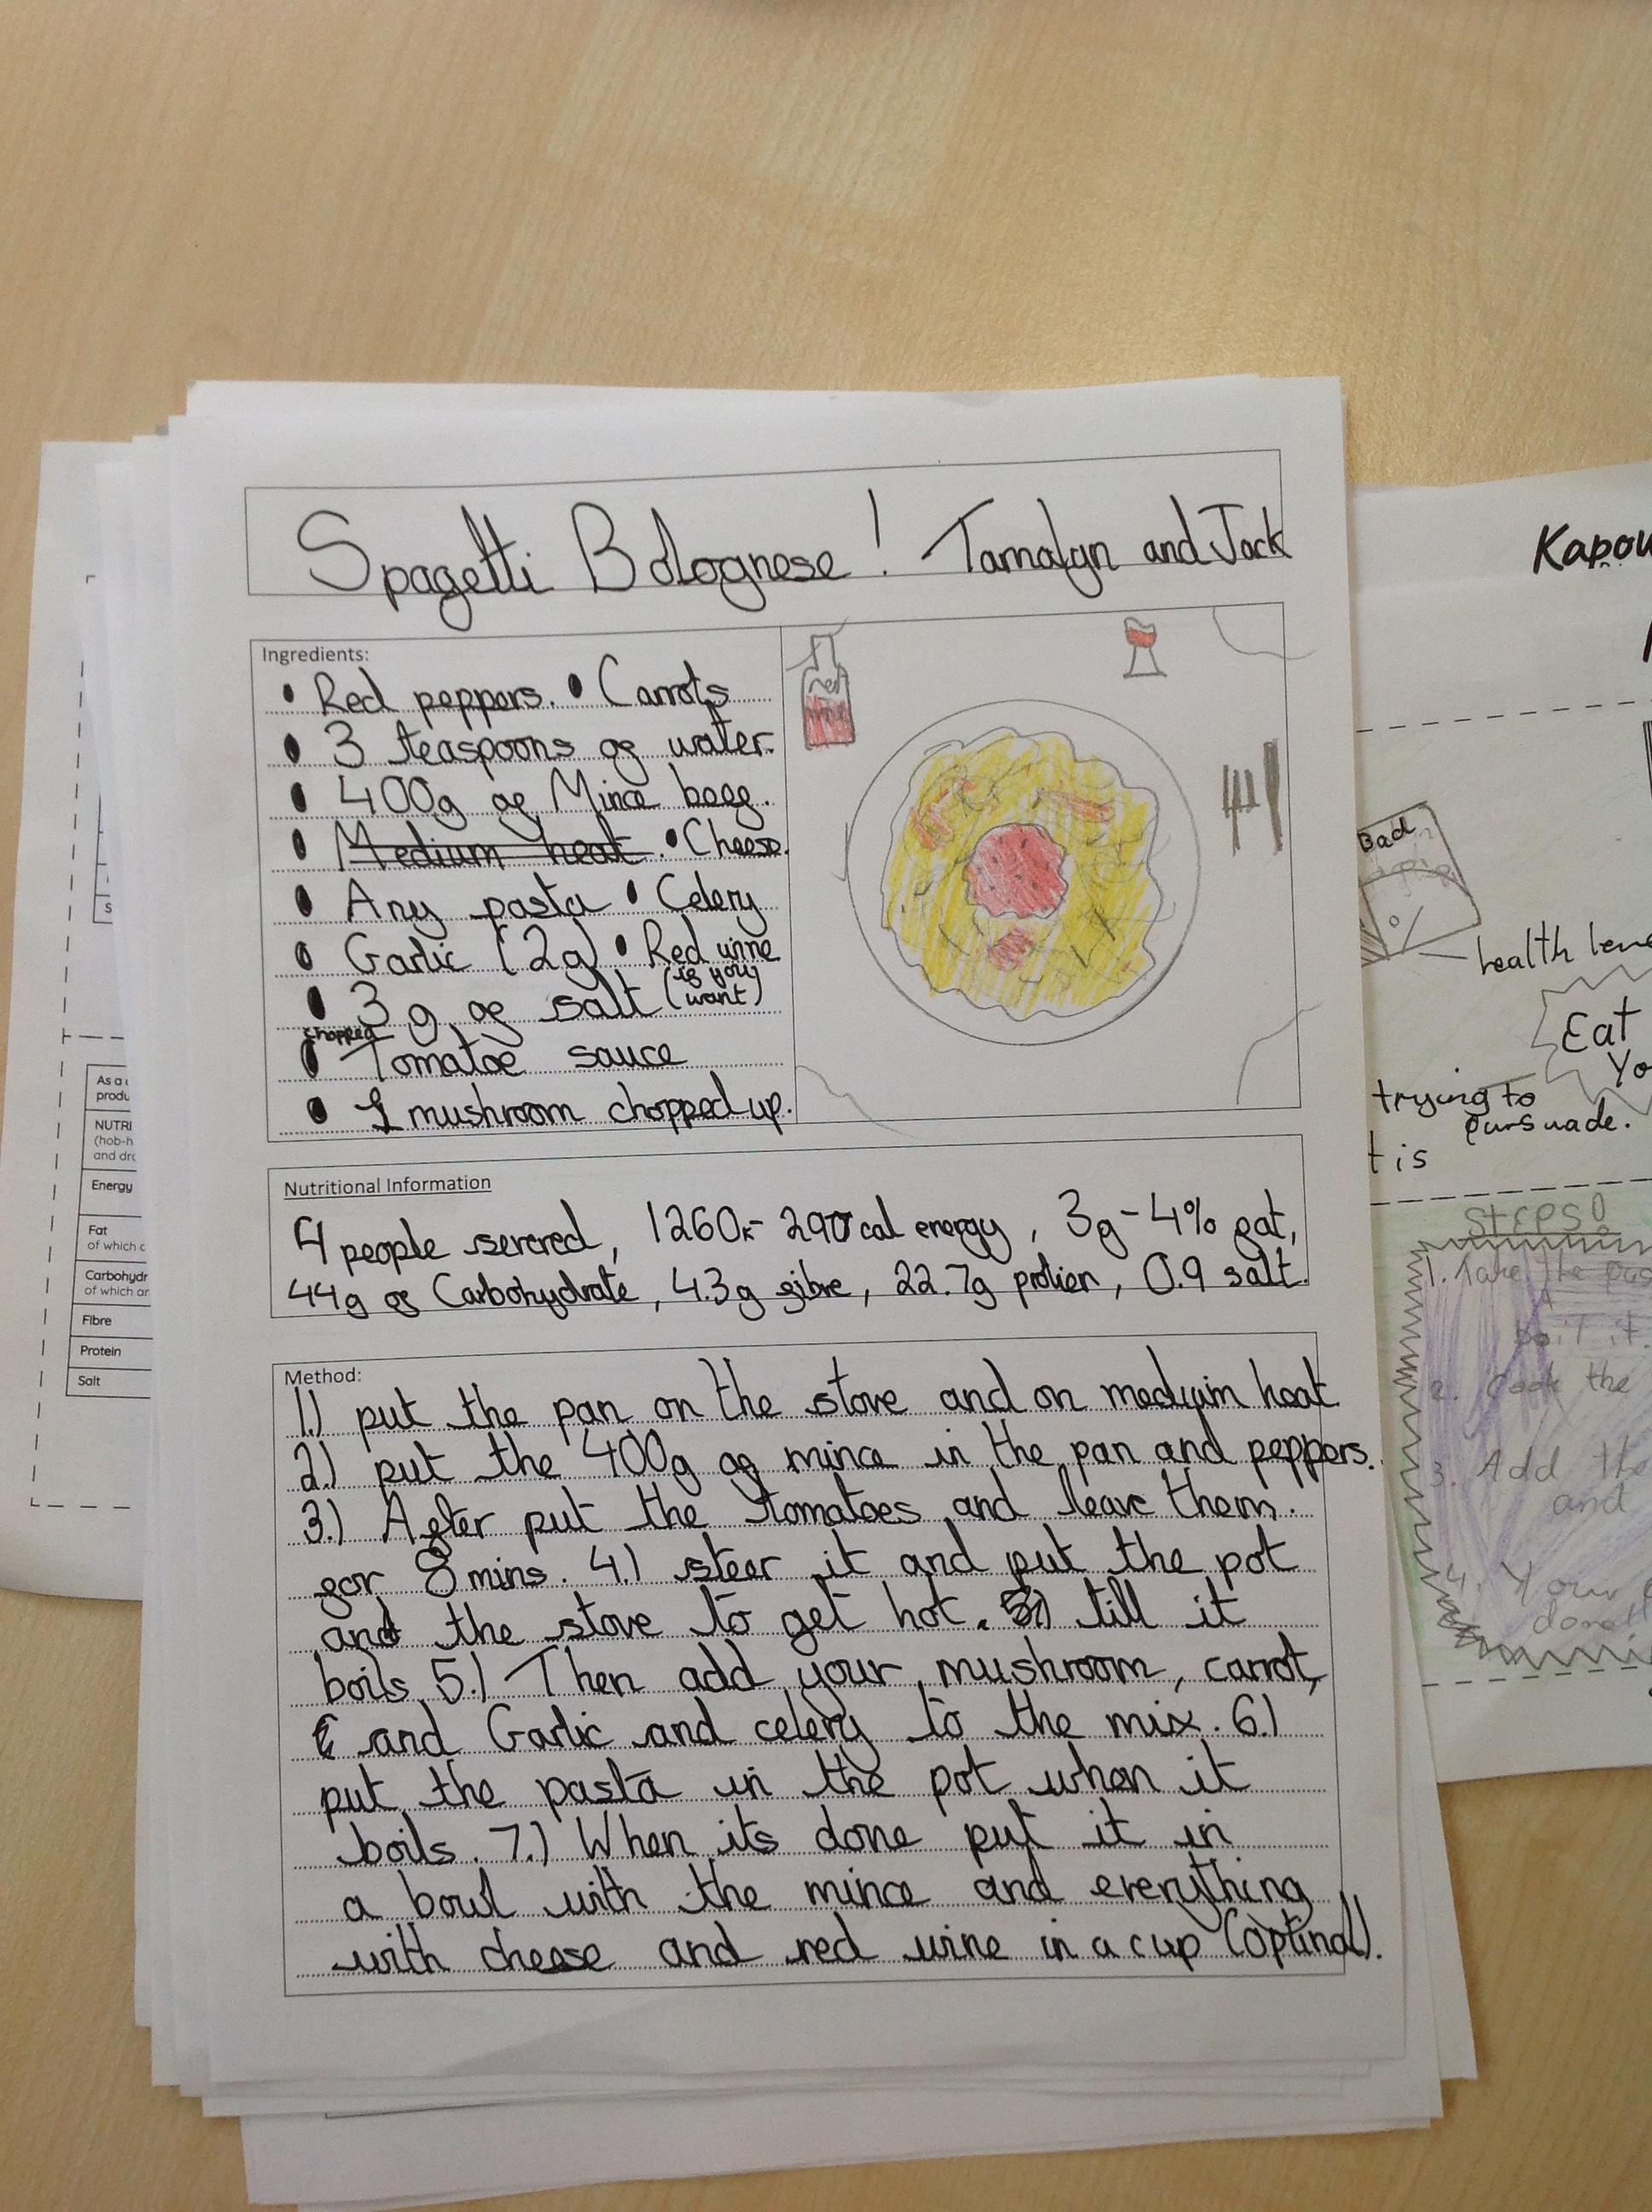 Spagetti Bolognese! Tamalyn and Jack
Ingredients:
• Red peppers. • Carrots
• 3 teaspoons of water.
• 400g of Mince beef.
• Medium heat. • Cheese.
• Any pasta • Celery
• Garlic (2g) • Red wine
(if you
• 3g of salt want)
chopped
• Tomatoe sauce
• 1 mushroom chopped up.
red
Nutritional Information
4 people serered, 1260k- 290cal energy, 3g-4% fat,
44g of Carbohydrate, 4.3g fibre, 22.7g protien, 0.9 salt.
Method:
1.) put the pan on the stove and on medyuim heat
2.) put the 400g of mince in the pan and peppers.
3.) After put the tomatoes and leave them.
for 8 mins. 4.) steer it and put the pot
and the stove to get hot. till it
boils 5.) Then add your mushroom, carrot,
and Garlic and celery to the mix. 6.)
put the pasta in the pot when it
boils. 7.) When its done put it in
a bowl with the mince and everything
with cheese and red wine in a cup (optinal).
As a
NUTRI
(hob-h
and dr
Energy
Fat
of which
Carbohydr
of which
Fibre
Protein
Salt
Kapow
Bad
health
Eat
Yo
trying to
pursuade.
t is
STEPS
1. Take the
boil it.
2. Cook the
3. Add the
and
4. Your
done!